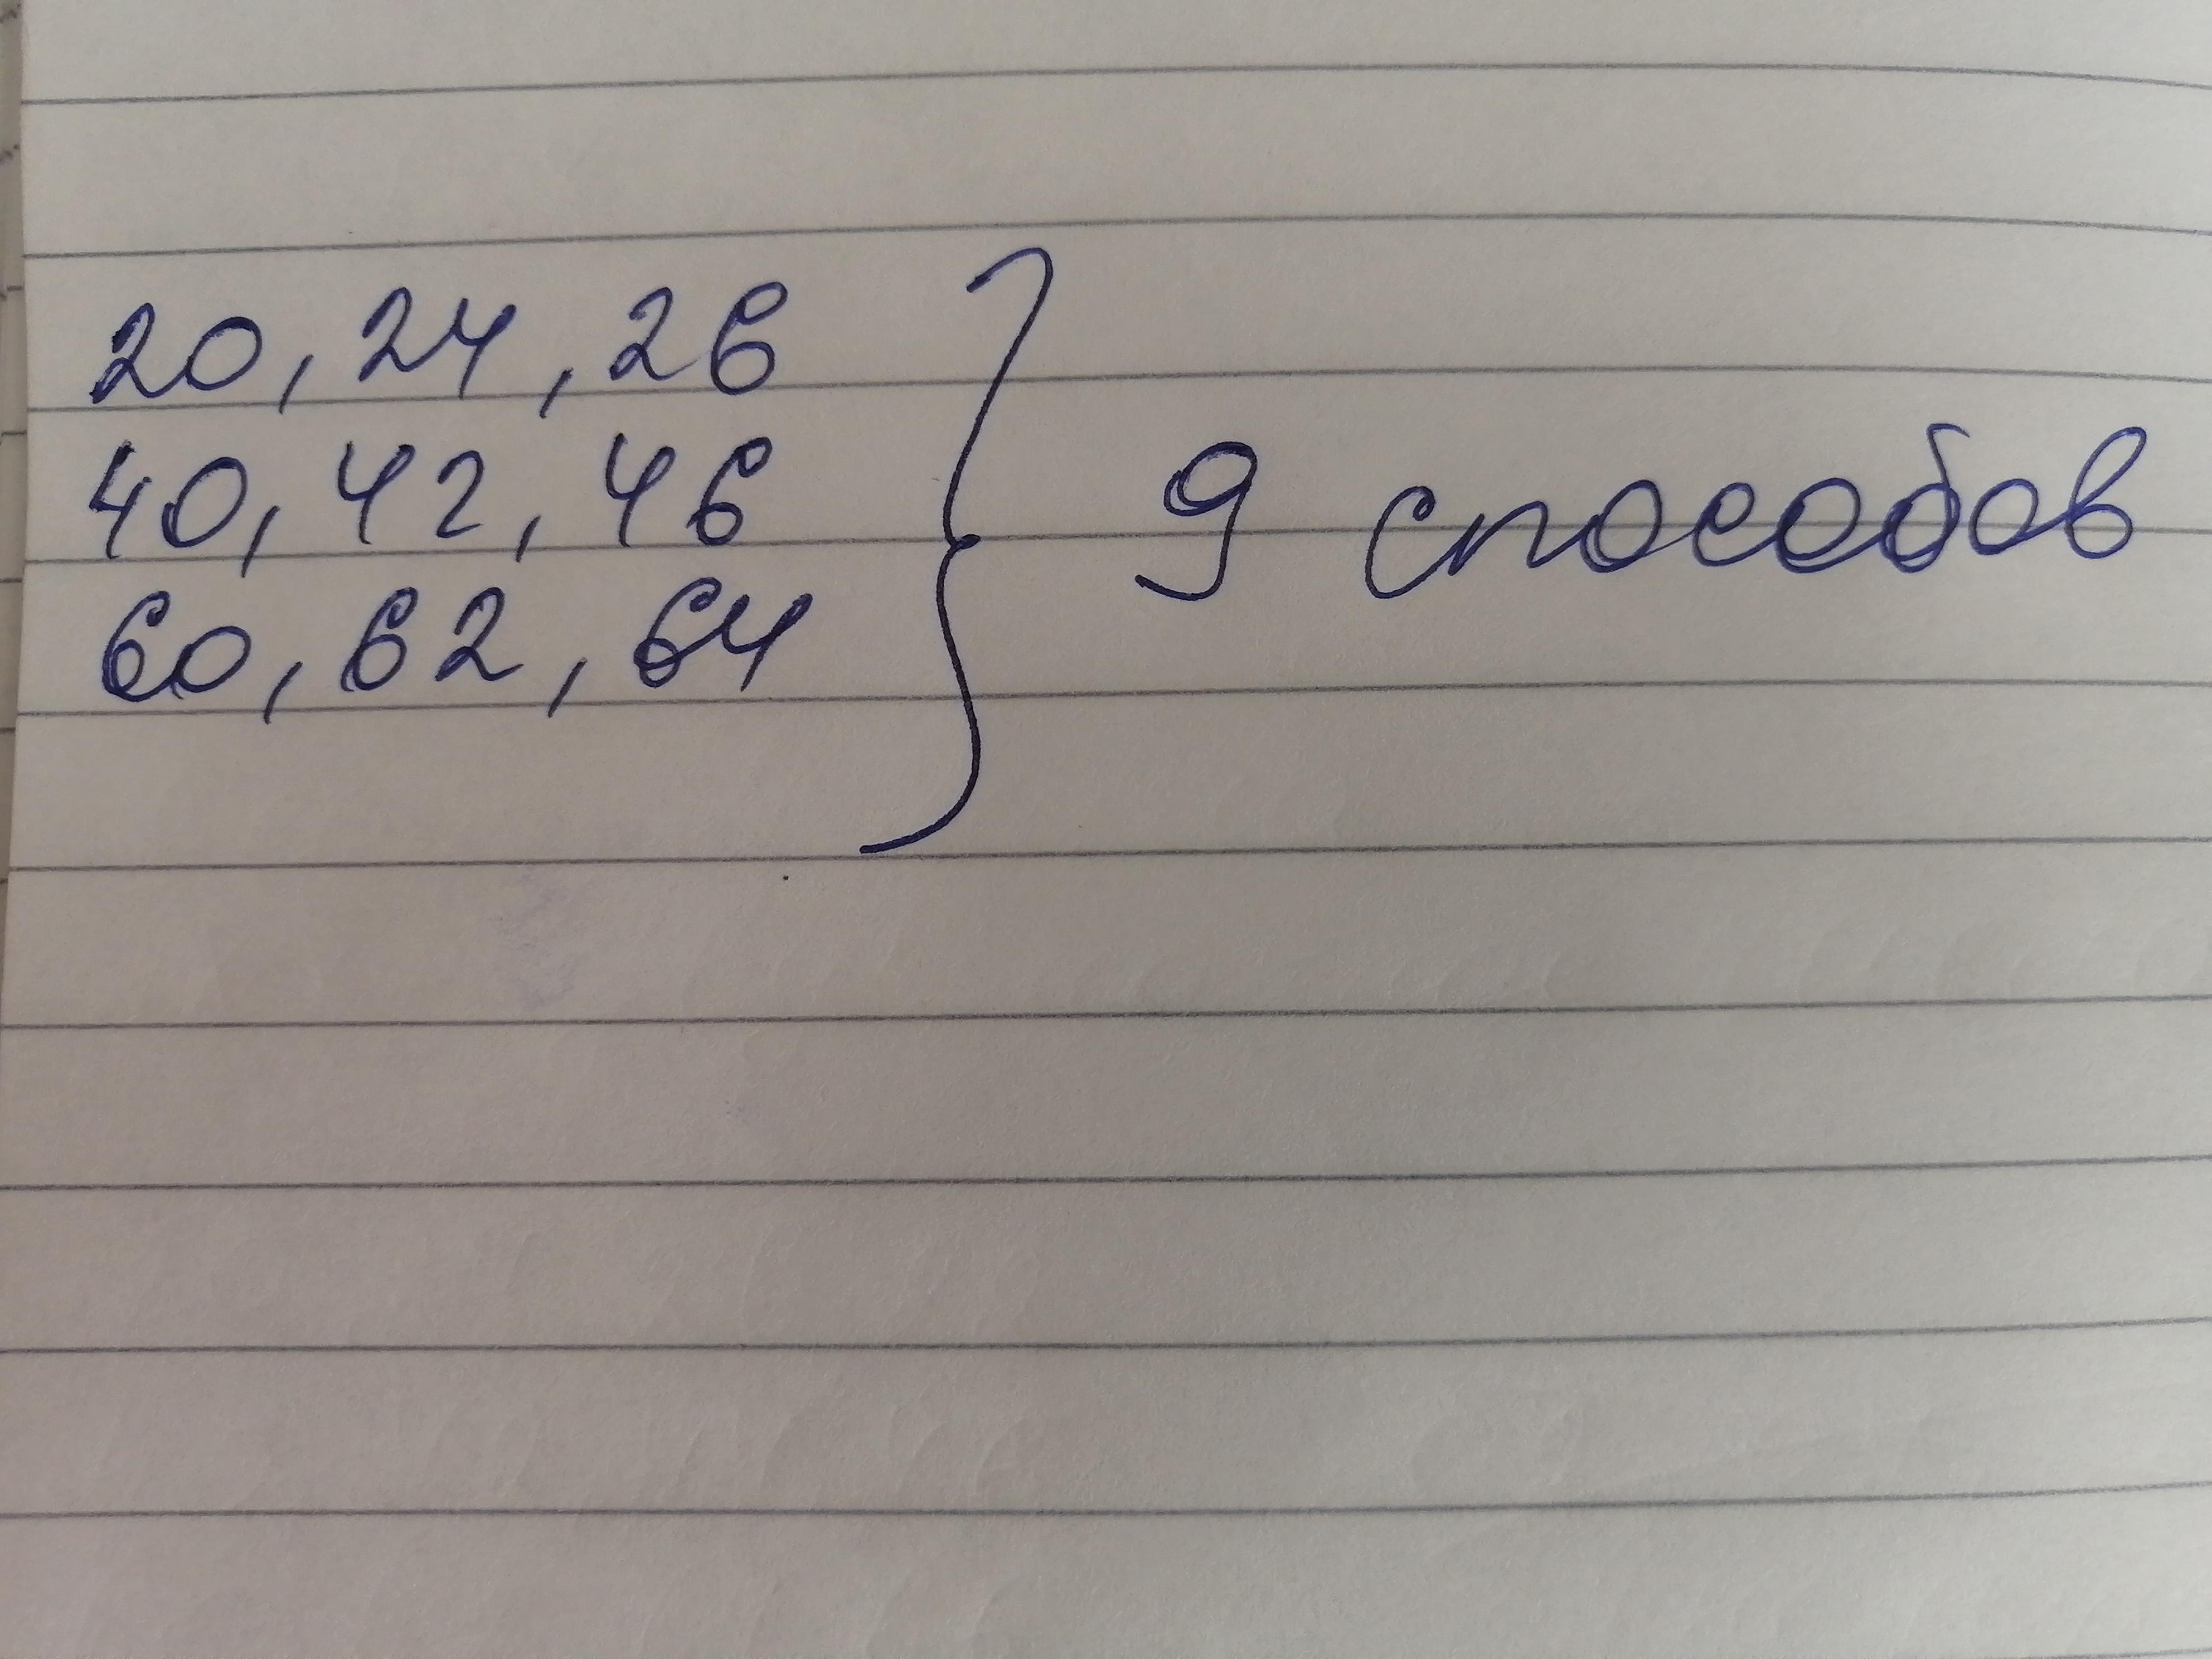 20, 24, 26
40, 42, 46
60, 62, 64
9 способов